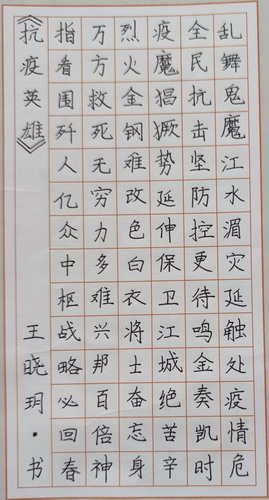 乱舞鬼魔江水湄灾延触处疫情危
全民抗击坚防控更待鸣金奏凯时
疫魔猖獗势延伸保卫江城绝苦辛
烈火金钢难改色白衣将士奋忘身
万方救死无穷力多难兴邦百倍神
指看围歼人亿众中枢战略必回春
《抗疫英雄》 王晓玥·书